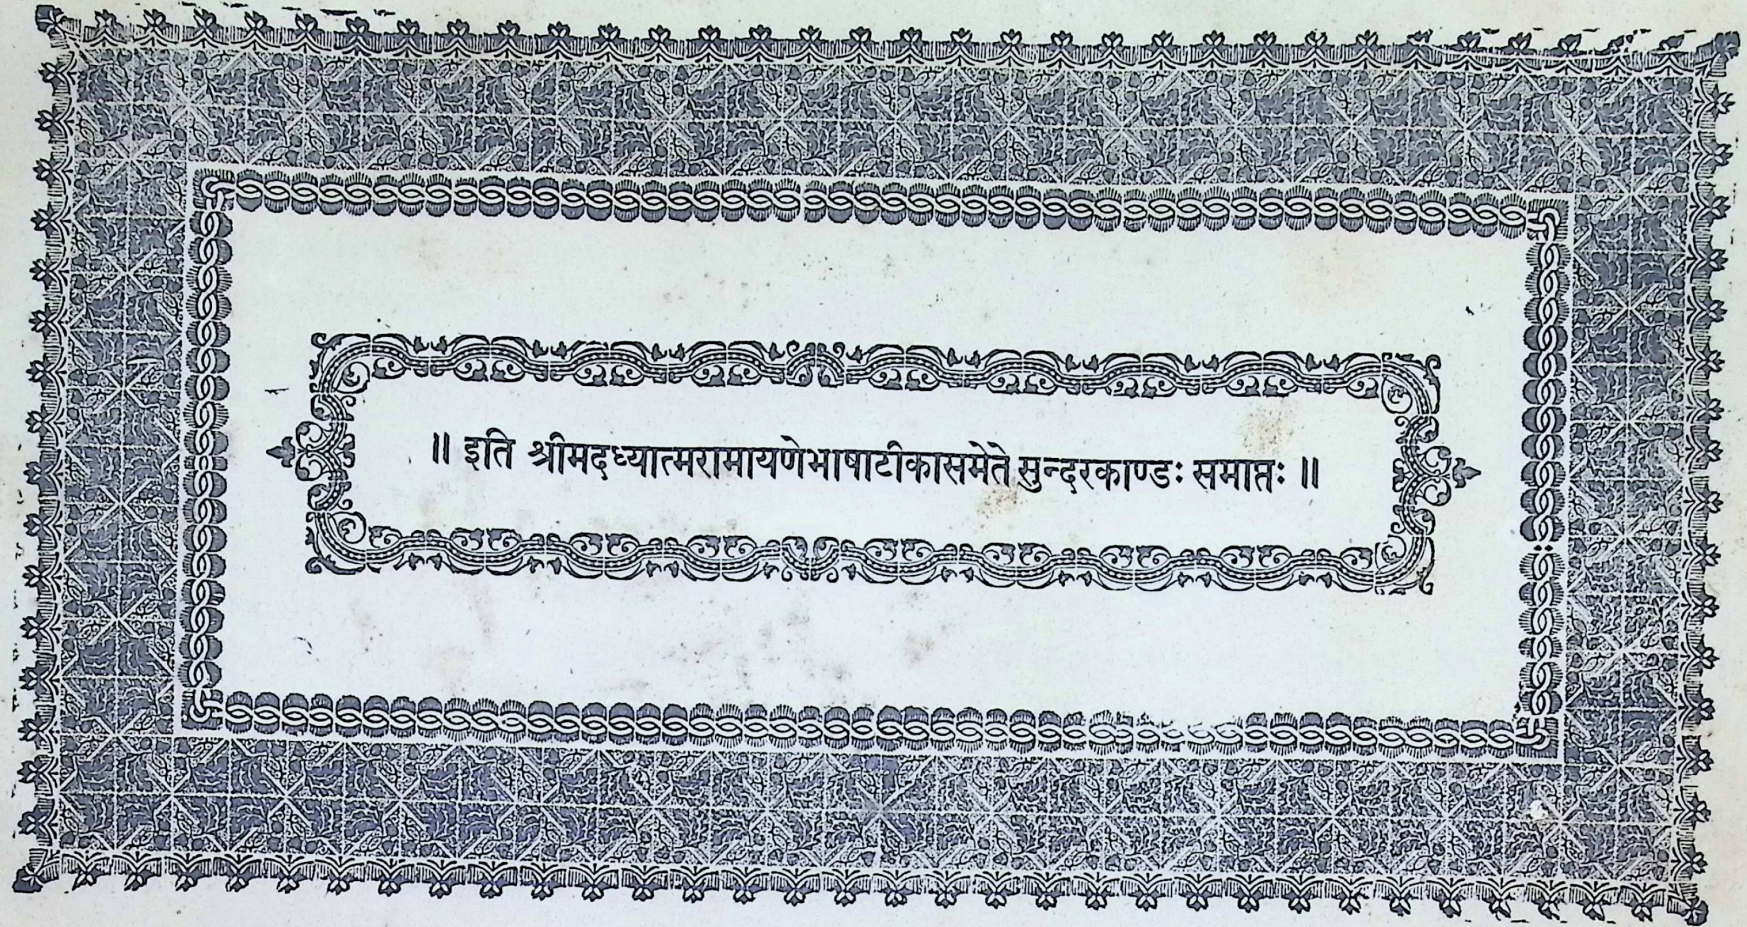 ॥ इति श्रीमदध्यात्मरामायणेभाषाटीकासमेते सुन्दरकाण्डः समाप्तः ॥